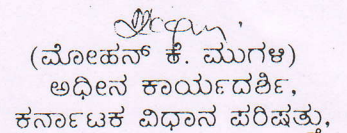 (ಮೋಹನ್ ಕೆ. ಮುಗಳಿ)
ಅಧೀನ ಕಾರ್ಯದರ್ಶಿ,
ಕರ್ನಾಟಕ ವಿಧಾನ ಪರಿಷತ್ತು,